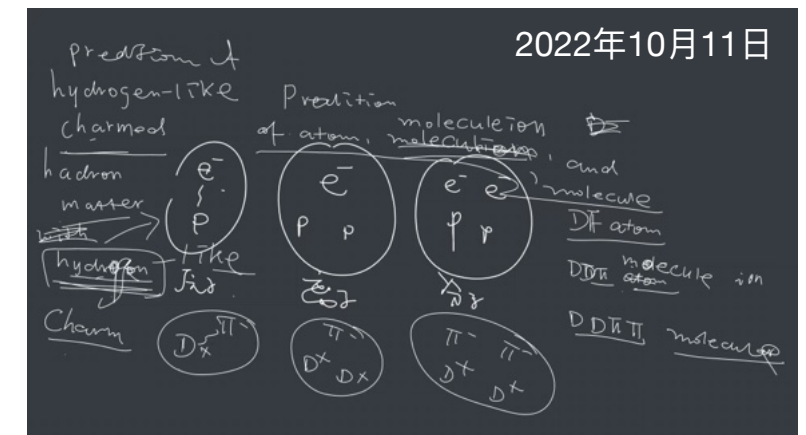 2022年10月11日
prediction of
hydrogen-like
charmed
hadron
matter
hydrogen - like
Charm
Predition
of atom, moleculeion
and
molecule
e⁻
p
e⁻
p p
e⁻ e⁻
p p
Dπ atom
DDπ molecule ion
DDππ molecule
π⁻
D⁺
π⁻
D⁺ D⁺
π⁻ π⁻
D⁺ D⁺